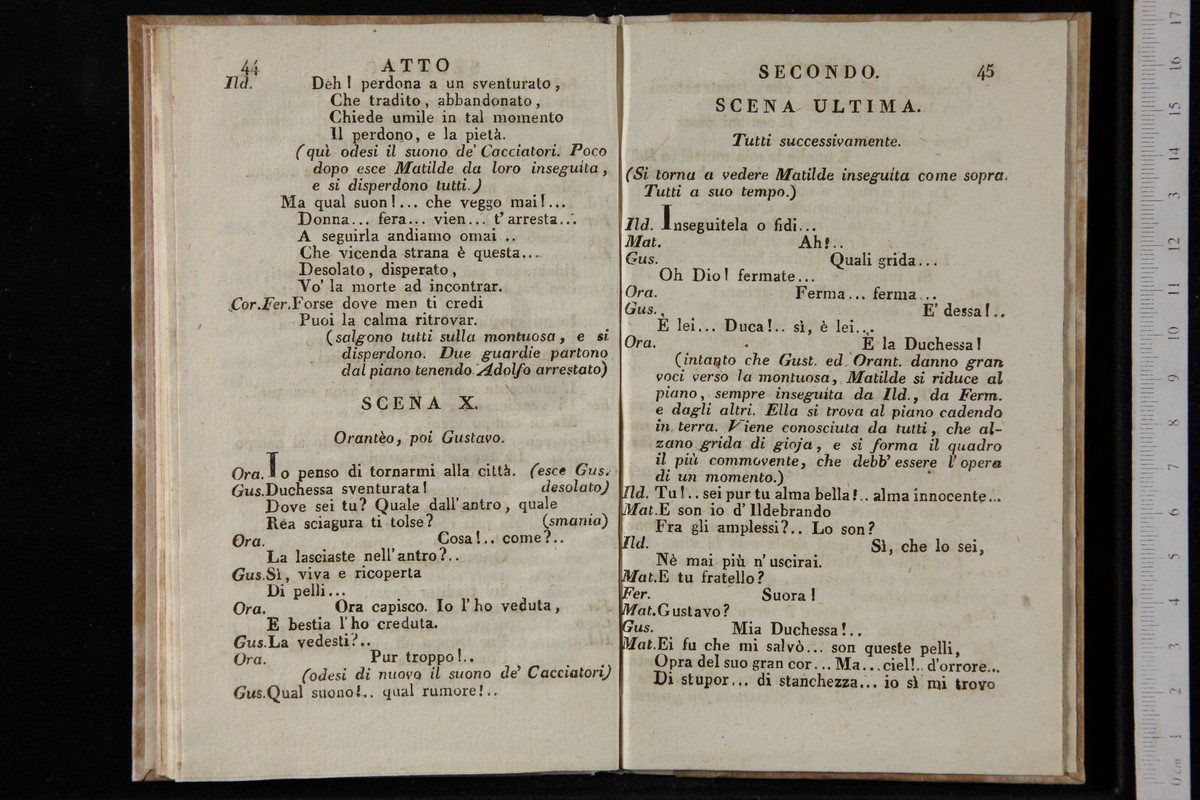 44 ATTO
Ild. Deh! perdona a un sventurato,
Che tradito, abbandonato,
Chiede umile in tal momento
Il perdono, e la pietà.
(quì odesi il suono de' Cacciatori. Poco
dopo esce Matilde da loro inseguita,
e si disperdono tutti.)
Ma qual suon!... che veggo mai!...
Donna... fera... vien... t'arresta...
A seguirla andiamo omai ..
Che vicenda strana è questa...
Desolato, disperato,
Vo' la morte ad incontrar.
Cor.Fer.Forse dove men ti credi
Puoi la calma ritrovar.
(salgono tutti sulla montuosa, e si
disperdono. Due guardie partono
dal piano tenendo Adolfo arrestato)
SCENA X.
Orantèo, poi Gustavo.
Ora. Io penso di tornarmi alla città. (esce Gus.
Gus.Duchessa sventurata! desolato)
Dove sei tu? Quale dall'antro, quale
Rea sciagura ti tolse? (smania)
Ora. Cosa!.. come?..
La lasciaste nell'antro?..
Gus.Sì, viva e ricoperta
Di pelli...
Ora. Ora capisco. Io l'ho veduta,
E bestia l'ho creduta.
Gus.La vedesti?..
Ora. Pur troppo!..
(odesi di nuovo il suono de' Cacciatori)
Gus.Qual suono!.. qual rumore!..
SECONDO. 45
SCENA ULTIMA.
Tutti successivamente.
(Si torna a vedere Matilde inseguita come sopra.
Tutti a suo tempo.)
Ild. Inseguitela o fidi...
Mat. Ah!..
Gus. Quali grida...
Oh Dio! fermate...
Ora. Ferma... ferma...
Gus. E' dessa!..
È lei... Duca!.. sì, è lei...
Ora. È la Duchessa!
(intanto che Gust. ed Orant. danno gran
voci verso la montuosa, Matilde si riduce al
piano, sempre inseguita da Ild., da Ferm.
e dagli altri. Ella si trova al piano cadendo
in terra. Viene conosciuta da tutti, che al-
zano grida di gioja, e si forma il quadro
il più commovente, che debb' essere l'opera
di un momento.)
Ild. Tu!.. sei pur tu alma bella!.. alma innocente...
Mat.E son io d'Ildebrando
Fra gli amplessi?.. Lo son?
Ild. Sì, che lo sei,
Nè mai più n'uscirai.
Mat.E tu fratello?
Fer. Suora!
Mat.Gustavo?
Gus. Mia Duchessa!..
Mat.Ei fu che mi salvò... son queste pelli,
Opra del suo gran cor... Ma...ciel!.. d'orrore...
Di stupor... di stanchezza... io sì mi trovo